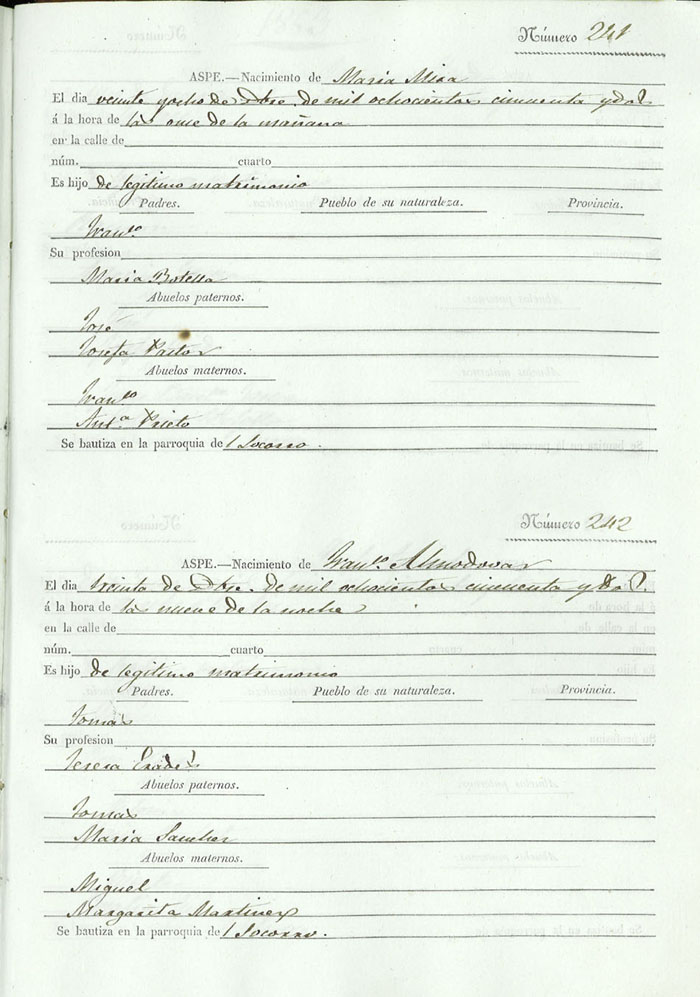 Número 241
ASPE.—Nacimiento de Maria Mira
El dia veinte y ocho de Dbre. de mil ochocientos cincuenta y dos
á la hora de las once de la mañana
en la calle de
núm. cuarto
Es hijo de legitimo matrimonio
Padres. Pueblo de su naturaleza. Provincia.
Franco.
Su profesion
Maria Botella
Abuelos paternos.
José
Josefa Pastor
Abuelos maternos.
Franco.
Anta. Prieto
Se bautiza en la parroquia del Socorro.
Número 242
ASPE.—Nacimiento de Franco. Almodovar
El dia treinta de Dbre. de mil ochocientos cincuenta y dos.
á la hora de las nueve de la noche
en la calle de
núm. cuarto
Es hijo de legitimo matrimonio
Padres. Pueblo de su naturaleza. Provincia.
Tomas
Su profesion
Teresa
Abuelos paternos.
Tomas
Maria Sanchez
Abuelos maternos.
Miguel
Margarita Martinez
Se bautiza en la parroquia del Socorro.